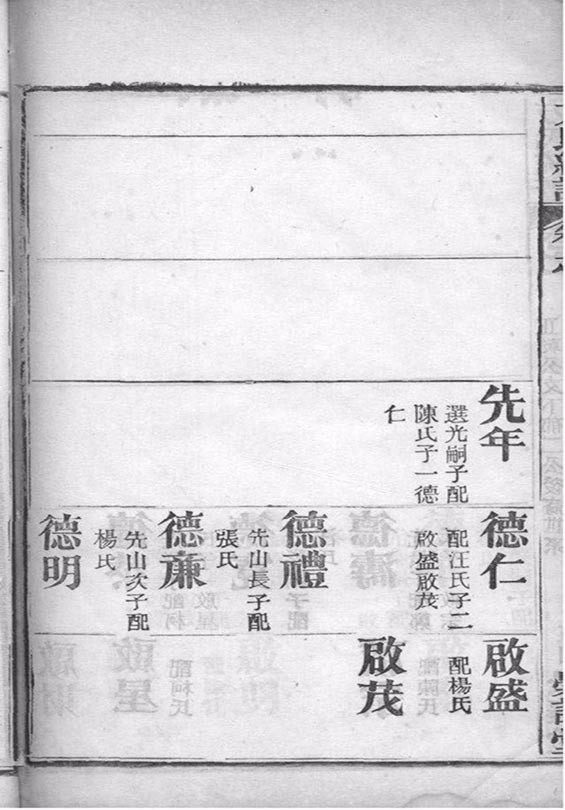 先年
選光嗣子配
陳氏子一德
仁
德仁
配汪氏子二
啟盛啟茂
德禮
先山長子配
張氏
德廉
先山次子配
楊氏
德明
啟盛
配楊氏
啟茂